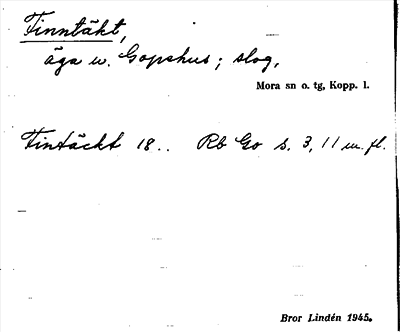 Finntäkt,
äga w. Gopshus; slog,
Mora sn o. tg, Kopp. l.
Fintäckt 18.. Rb Go s. 3, 11 m. fl.
Bror Lindén 1945.